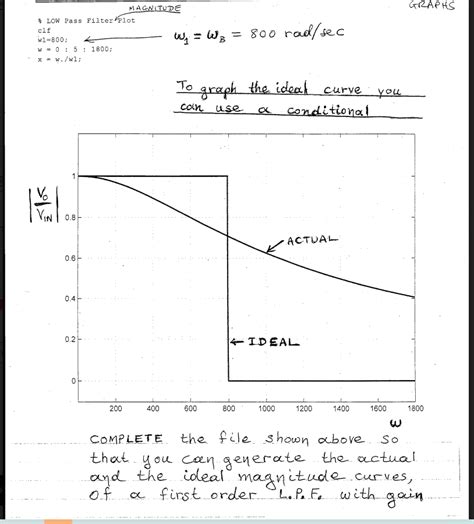 GRAPHS
MAGNITUDE
% LOW Pass Filter Plot
clf
w1=800;
w = 0 : 5 : 1800;
x = w./w1;
ω₁ = ω_B = 800 rad/sec
To graph the ideal curve you
can use a conditional
|V₀/V_IN|
1
0.8
0.6
0.4
0.2
0
ACTUAL
IDEAL
200 400 600 800 1000 1200 1400 1600 1800
ω
COMPLETE the file shown above so
that you can generate the actual
and the ideal magnitude curves,
of a first order L.P.F. with gain